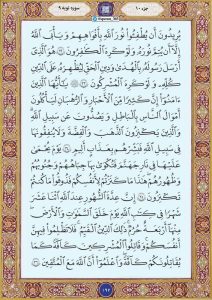 جزء ۱۰
سوره توبه ۹
يُرِيدُونَ أَن يُطْفِـُٔوا۟ نُورَ ٱللَّهِ بِأَفْوَٰهِهِمْ وَيَأْبَى ٱللَّهُ
إِلَّآ أَن يُتِمَّ نُورَهُۥ وَلَوْ كَرِهَ ٱلْكَٰفِرُونَ ٣٢ هُوَ ٱلَّذِىٓ
أَرْسَلَ رَسُولَهُۥ بِٱلْهُدَىٰ وَدِينِ ٱلْحَقِّ لِيُظْهِرَهُۥ عَلَى ٱلدِّينِ
كُلِّهِۦ وَلَوْ كَرِهَ ٱلْمُشْرِكُونَ ٣٣ يَٰٓأَيُّهَا ٱلَّذِينَ
ءَامَنُوٓا۟ إِنَّ كَثِيرًا مِّنَ ٱلْأَحْبَارِ وَٱلرُّهْبَانِ لَيَأْكُلُونَ
أَمْوَٰلَ ٱلنَّاسِ بِٱلْبَٰطِلِ وَيَصُدُّونَ عَن سَبِيلِ ٱللَّهِ
وَٱلَّذِينَ يَكْنِزُونَ ٱلذَّهَبَ وَٱلْفِضَّةَ وَلَا يُنفِقُونَهَا
فِى سَبِيلِ ٱللَّهِ فَبَشِّرْهُم بِعَذَابٍ أَلِيمٍ ٣٤ يَوْمَ يُحْمَىٰ
عَلَيْهَا فِى نَارِ جَهَنَّمَ فَتُكْوَىٰ بِهَا جِبَاهُهُمْ وَجُنُوبُهُمْ
وَظُهُورُهُمْ هَٰذَا مَا كَنَزْتُمْ لِأَنفُسِكُمْ فَذُوقُوا۟ مَا كُنتُمْ
تَكْنِزُونَ ٣٥ إِنَّ عِدَّةَ ٱلشُّهُورِ عِندَ ٱللَّهِ ٱثْنَا عَشَرَ
شَهْرًا فِى كِتَٰبِ ٱللَّهِ يَوْمَ خَلَقَ ٱلسَّمَٰوَٰتِ وَٱلْأَرْضَ
مِنْهَآ أَرْبَعَةٌ حُرُمٌ ذَٰلِكَ ٱلدِّينُ ٱلْقَيِّمُ فَلَا تَظْلِمُوا۟ فِيهِنَّ
أَنفُسَكُمْ وَقَٰتِلُوا۟ ٱلْمُشْرِكِينَ كَآفَّةً كَمَا
يُقَٰتِلُونَكُمْ كَآفَّةً وَٱعْلَمُوٓا۟ أَنَّ ٱللَّهَ مَعَ ٱلْمُتَّقِينَ ٣٦
۱۹۲